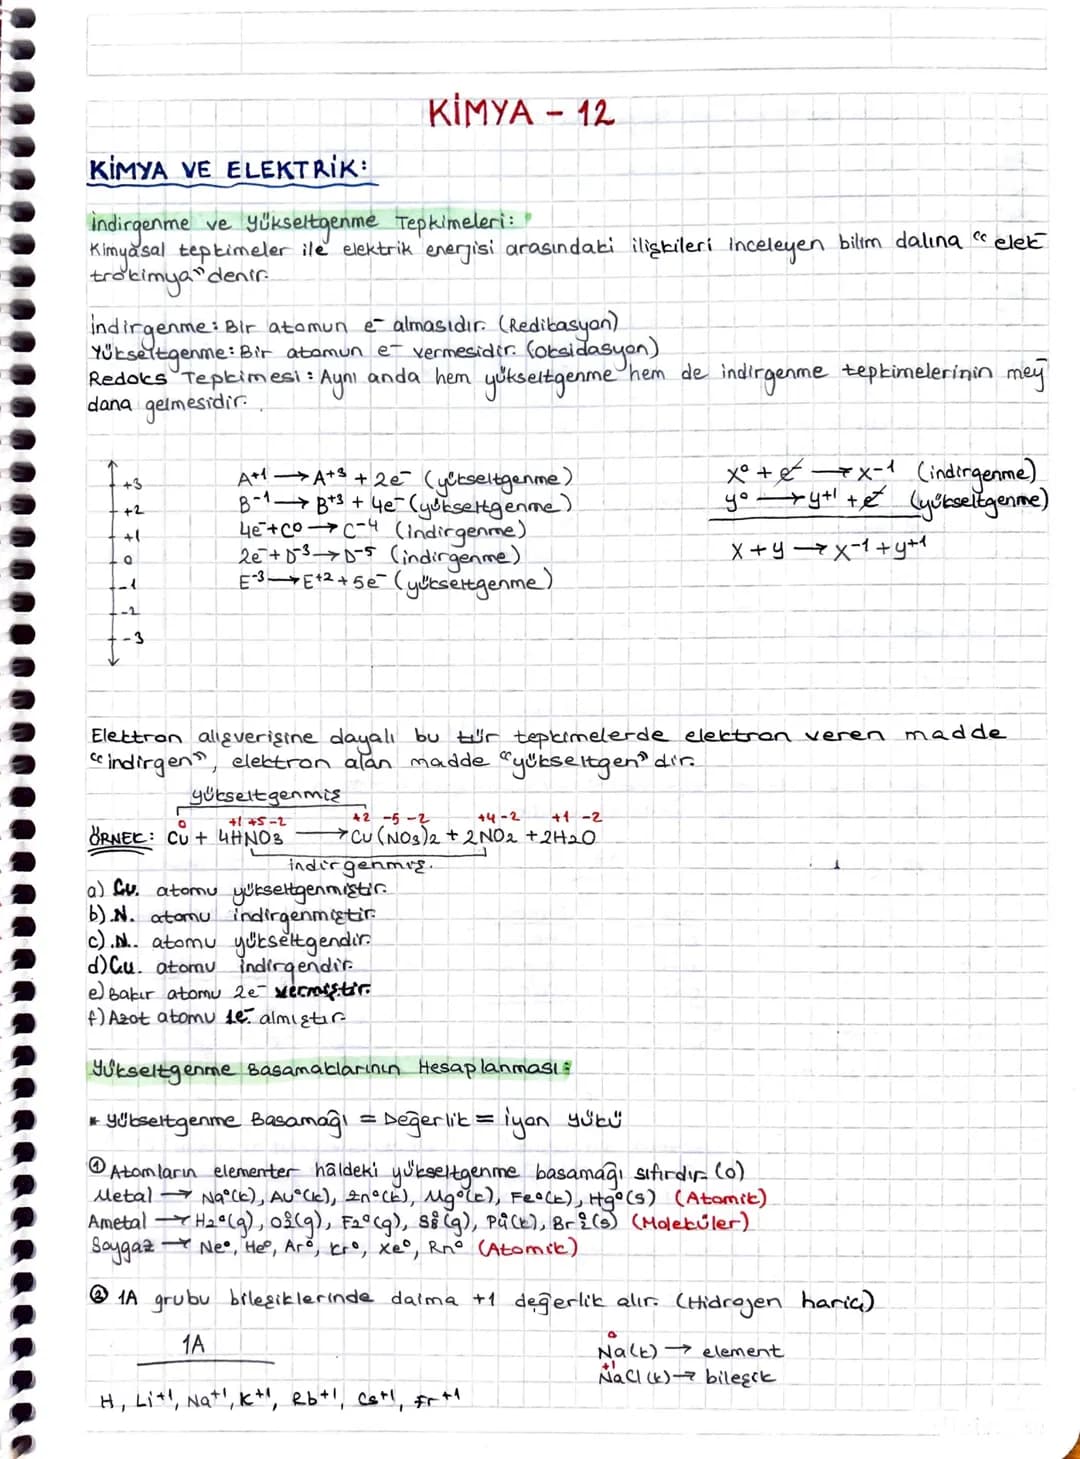 KİMYA - 12
KİMYA VE ELEKTRİK:
İndirgenme ve Yükseltgenme Tepkimeleri:
Kimyasal tepkimeler ile elektrik enerjisi arasındaki ilişkileri inceleyen bilim dalına "elek
trokimya" denir.
İndirgenme: Bir atomun e⁻ almasıdır. (Redikasyon)
Yükseltgenme: Bir atomun e⁻ vermesidir. (oksidasyon)
Redoks Tepkimesi: Aynı anda hem yükseltgenme hem de indirgenme tepkimelerinin mey
dana gelmesidir.
+3
+2
+1
0
-1
-2
-3
A⁺¹ → A⁺³ + 2e⁻ (yükseltgenme)
B⁻¹ → B⁺³ + 4e⁻ (yükseltgenme)
4e⁻ + C⁰ → C⁻⁴ (indirgenme)
2e⁻ + D⁻³ → D⁻⁵ (indirgenme)
E⁻³ → E⁺² + 5e⁻ (yükseltgenme)
X⁰ + e⁻ → X⁻¹ (indirgenme)
y⁰ → y⁺¹ + e⁻ (yükseltgenme)
X + y → X⁻¹ + y⁺¹
Elektron alışverişine dayalı bu tür tepkimelerde elektron veren madde
"indirgen", elektron alan madde "yükseltgen" dir.
yükseltgenmiş
0 +1 +5 -2 +2 -5 -2 +4 -2 +1 -2
ÖRNEK: Cu + 4HNO3 → Cu(NO3)2 + 2NO2 + 2H2O
indirgenmiş.
a) Cu. atomu yükseltgenmiştir.
b) .N. atomu indirgenmiştir.
c) .N.. atomu yükseltgendir.
d) Cu. atomu indirgendir.
e) Bakır atomu 2e⁻ vermiştir.
f) Azot atomu 1e⁻ almıştır.
Yükseltgenme Basamaklarının Hesaplanması:
* Yükseltgenme Basamağı = Değerlik = İyon yükü
① Atomların elementer hâldeki yükseltgenme basamağı sıfırdır. (0)
Metal → Na⁰(k), Au⁰(k), Zn⁰(k), Mg⁰(k), Fe⁰(k), Hg⁰(s) (Atomik)
Ametal → H2⁰(g), O2⁰(g), F2⁰(g), S8⁰(g), P4⁰(k), Br2⁰(s) (Moleküler)
Soygaz → Ne⁰, He⁰, Ar⁰, Kr⁰, Xe⁰, Rn⁰ (Atomik)
② 1A grubu bileşiklerinde daima +1 değerlik alır. (Hidrojen hariç)
1A
H, Li⁺¹, Na⁺¹, K⁺¹, Rb⁺¹, Cs⁺¹, Fr⁺¹
0
Na(k) → element
+1
NaCl(k) → bileşik